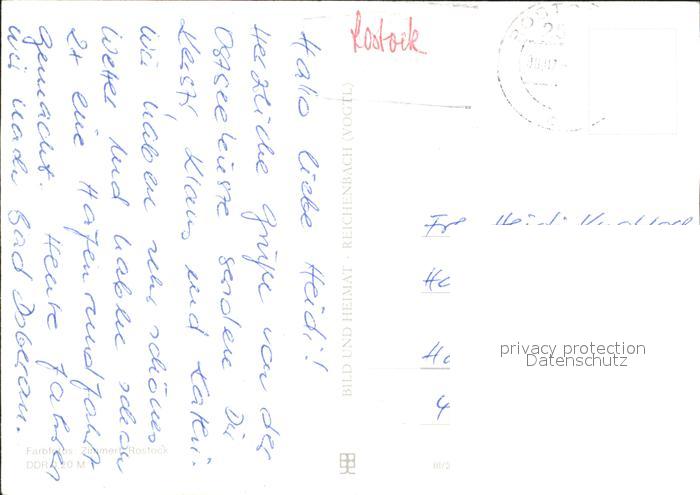 Hallo liebe Heidi!
Herzliche Grüße von der
Ostseeküste senden Dir
Kersti, Klaus und Katrin.
Wir haben sehr schönes
Wetter und haben schon
2x eine Hafenrundfahrt
gemacht. Heute fahren
wir nach Bad Doberan.
Rostock
BILD UND HEIMAT · REICHENBACH (VOGTL)
Farbfotos: Zimmer, Rostock
DDR 0,20 M
Heidi
privacy protection
Datenschutz